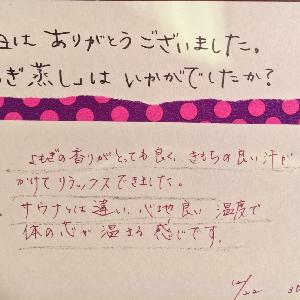 日は ありがとうございました。
ぎ蒸し」は いかがでしたか？
よもぎの香りがとっても良く、きもちの良い汗が
かけて リラックスできました。
サウナとは違い、心地良い 温度で
体の芯が 温まる 感じです。
12/22